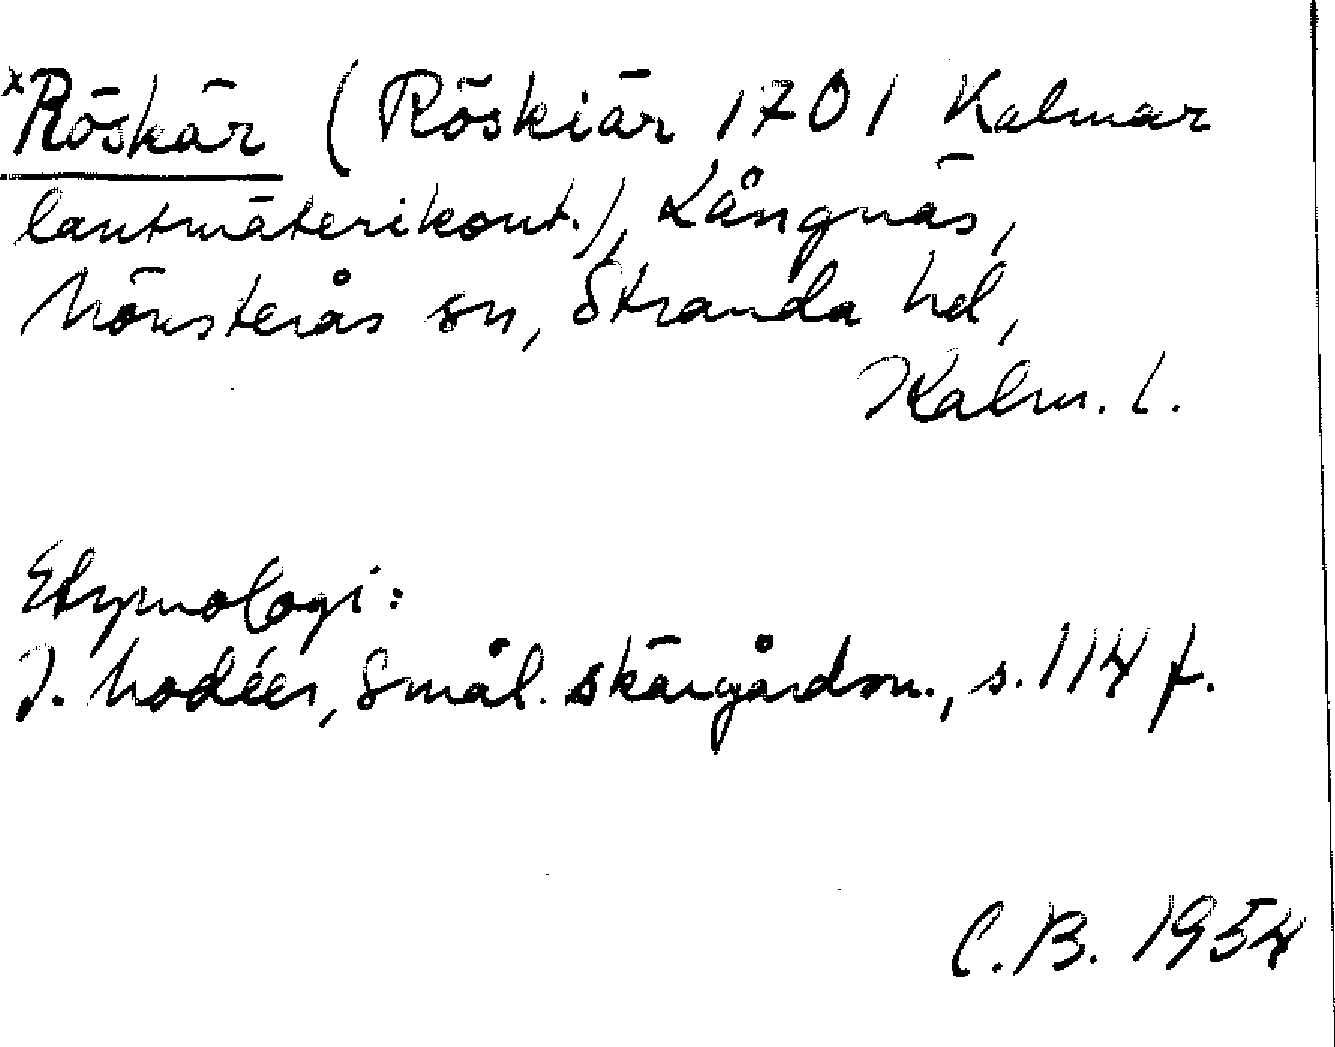 *Röskär (Röskiär 1701 Kalmar
lantmäterikont.), Långnäs,
Mönsterås sn, Stranda hd,
Kalm. l.
Etymologi:
J. Modéer, Smål. skärgårdsn., s. 114 f.
C.B. 1954